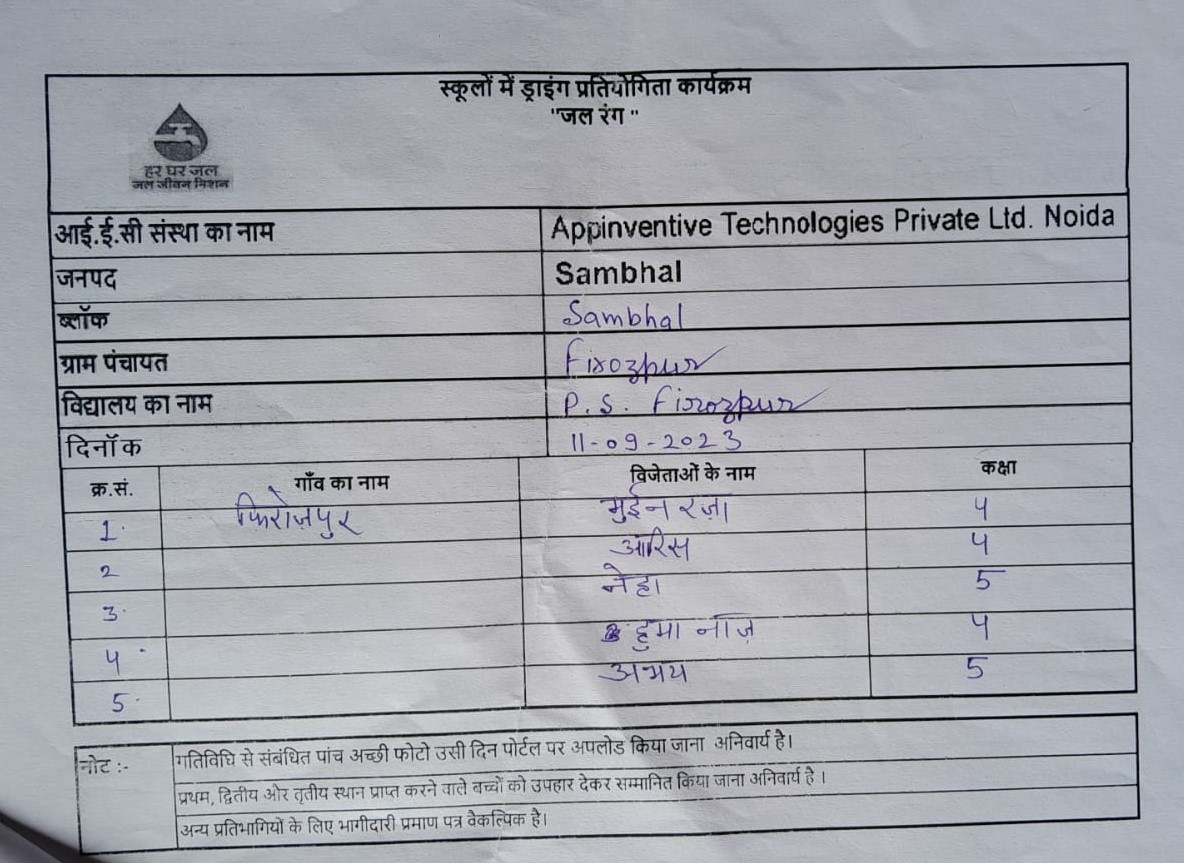 स्कूलों में ड्राइंग प्रतियोगिता कार्यक्रम
"जल रंग "
हर घर जल
जल जीवन मिशन
आई.ई.सी संस्था का नाम Appinventive Technologies Private Ltd. Noida
जनपद Sambhal
ब्लॉक Sambhal
ग्राम पंचायत Firozpur
विद्यालय का नाम P.S. Firozpur
दिनॉक 11-09-2023
क्र.सं. गाँव का नाम विजेताओं के नाम कक्षा
1. फिरोज़पुर मुईन रज़ा 4
2 आरिस 4
3. नेहा 5
4. हुमा नाज़ 4
5. अभय 5
नोट :- गतिविधि से संबंधित पांच अच्छी फोटो उसी दिन पोर्टल पर अपलोड किया जाना अनिवार्य है।
प्रथम, द्वितीय और तृतीय स्थान प्राप्त करने वाले बच्चों को उपहार देकर सम्मानित किया जाना अनिवार्य है ।
अन्य प्रतिभागियों के लिए भागीदारी प्रमाण पत्र वैकल्पिक है।